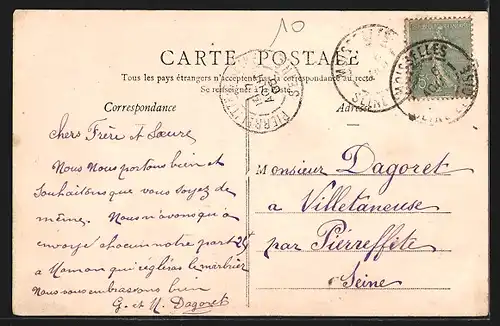 10
CARTE POSTALE
Tous les pays étrangers n'acceptent pas la correspondance au recto
Se renseigner à la Poste
Correspondance
Adresse
chers Frère et Soeure
Nous Nous portons bien et
Souhaitons que vous soyez de
même. Nous n'avons qu'a
envoyé chacun notre part 25f
a Maman qui régléras le marbrier
Nous vous embrassons bien
G. et N. Dagoret
Monsieur Dagoret
a Villetaneuse
par Pierreffite
Seine
MOISSELLES